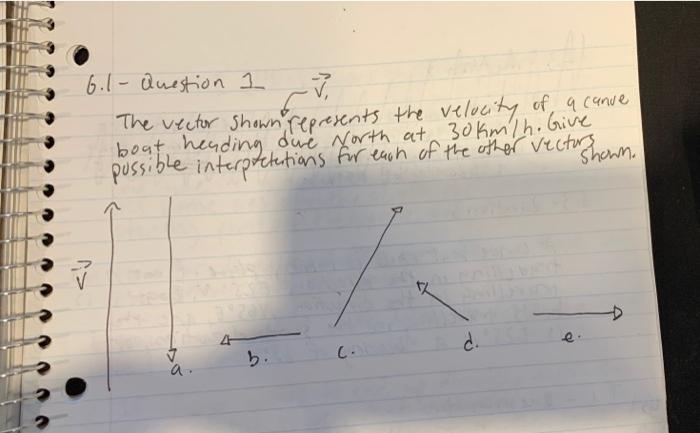 6.1 - Question 1
v,
The vector shown, represents the velocity of a canoe
boat heading due North at 30km/h. Give
possible interpretations for each of the other vectors
shown.
v
a.
b.
c.
d.
e.